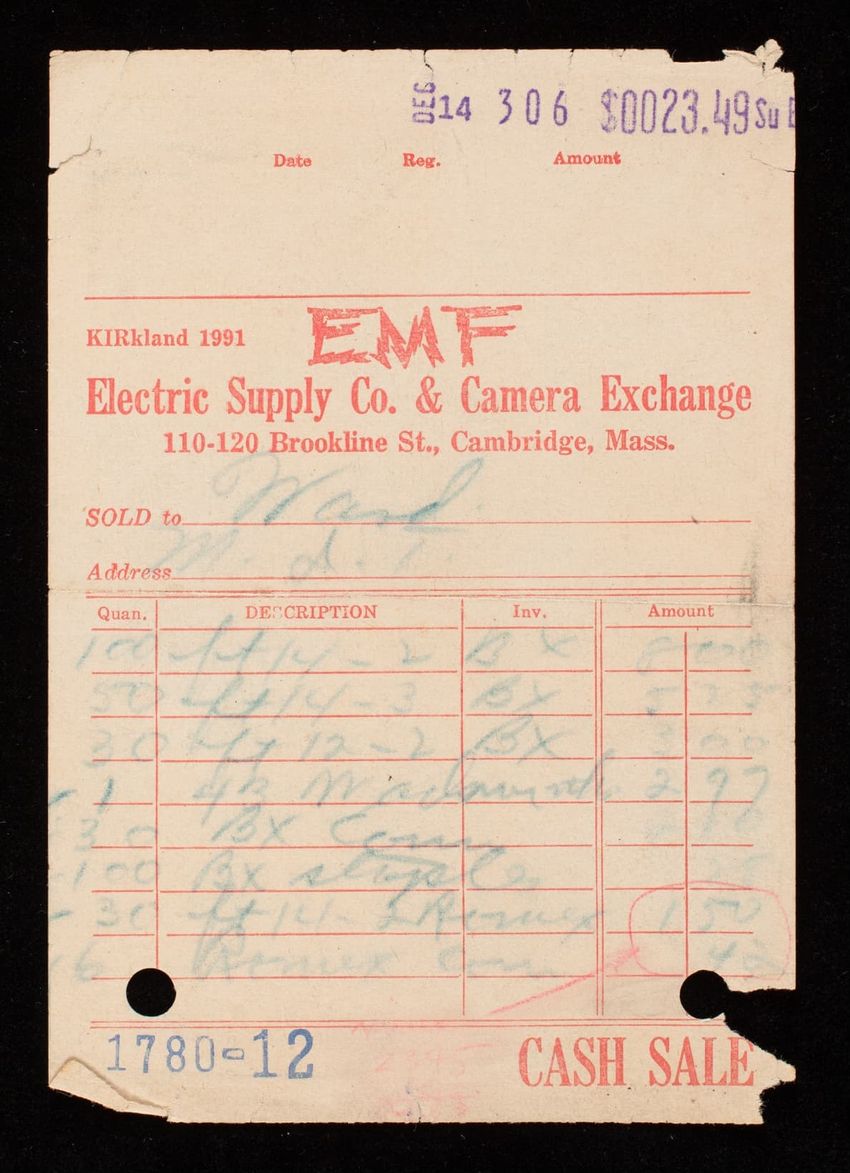 DEC 14 306 $0023.49 Su
Date Reg. Amount
KIRkland 1991 EMF
Electric Supply Co. & Camera Exchange
110-120 Brookline St., Cambridge, Mass.
SOLD to Ward
Address M. I. T.
Quan. DESCRIPTION Inv. Amount
100 ft 14-2 BX 8 00
50 ft 14-3 BX 5 75
30 ft 12-2 BX 3 00
1 2 97
30 BX Conn
100 BX staples
30 ft 14-2 Romex 1 50
6 Romex Conn 42
1780-12 CASH SALE